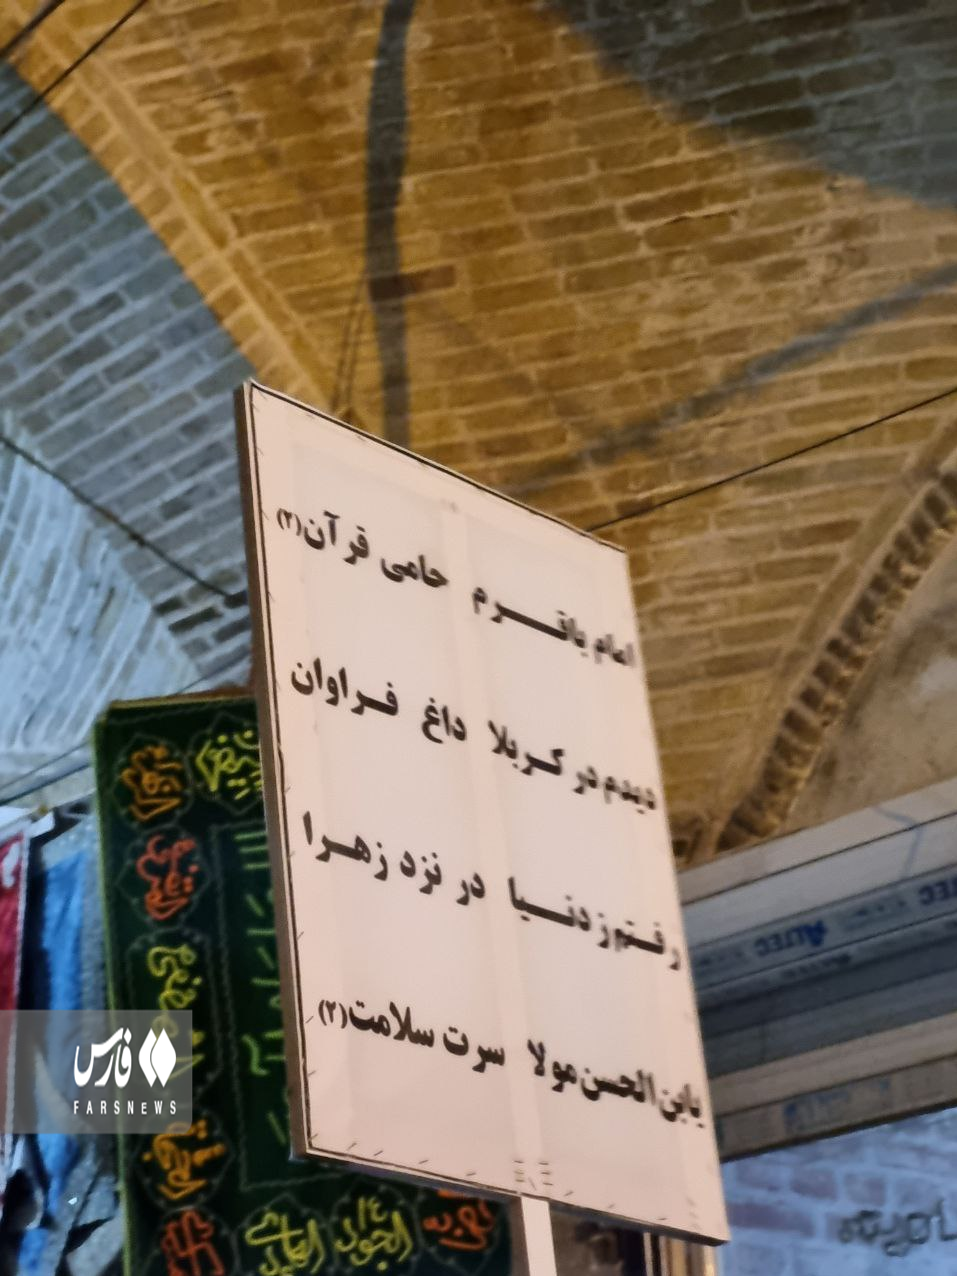 امام باقرم حامی قرآن(۲)
دیدم در کربلا داغ فراوان
رفتم ز دنیا در نزد زهرا
یابن الحسن مولا سرت سلامت(۲)
ALTEC
ALTEC
فارس
FARSNEWS